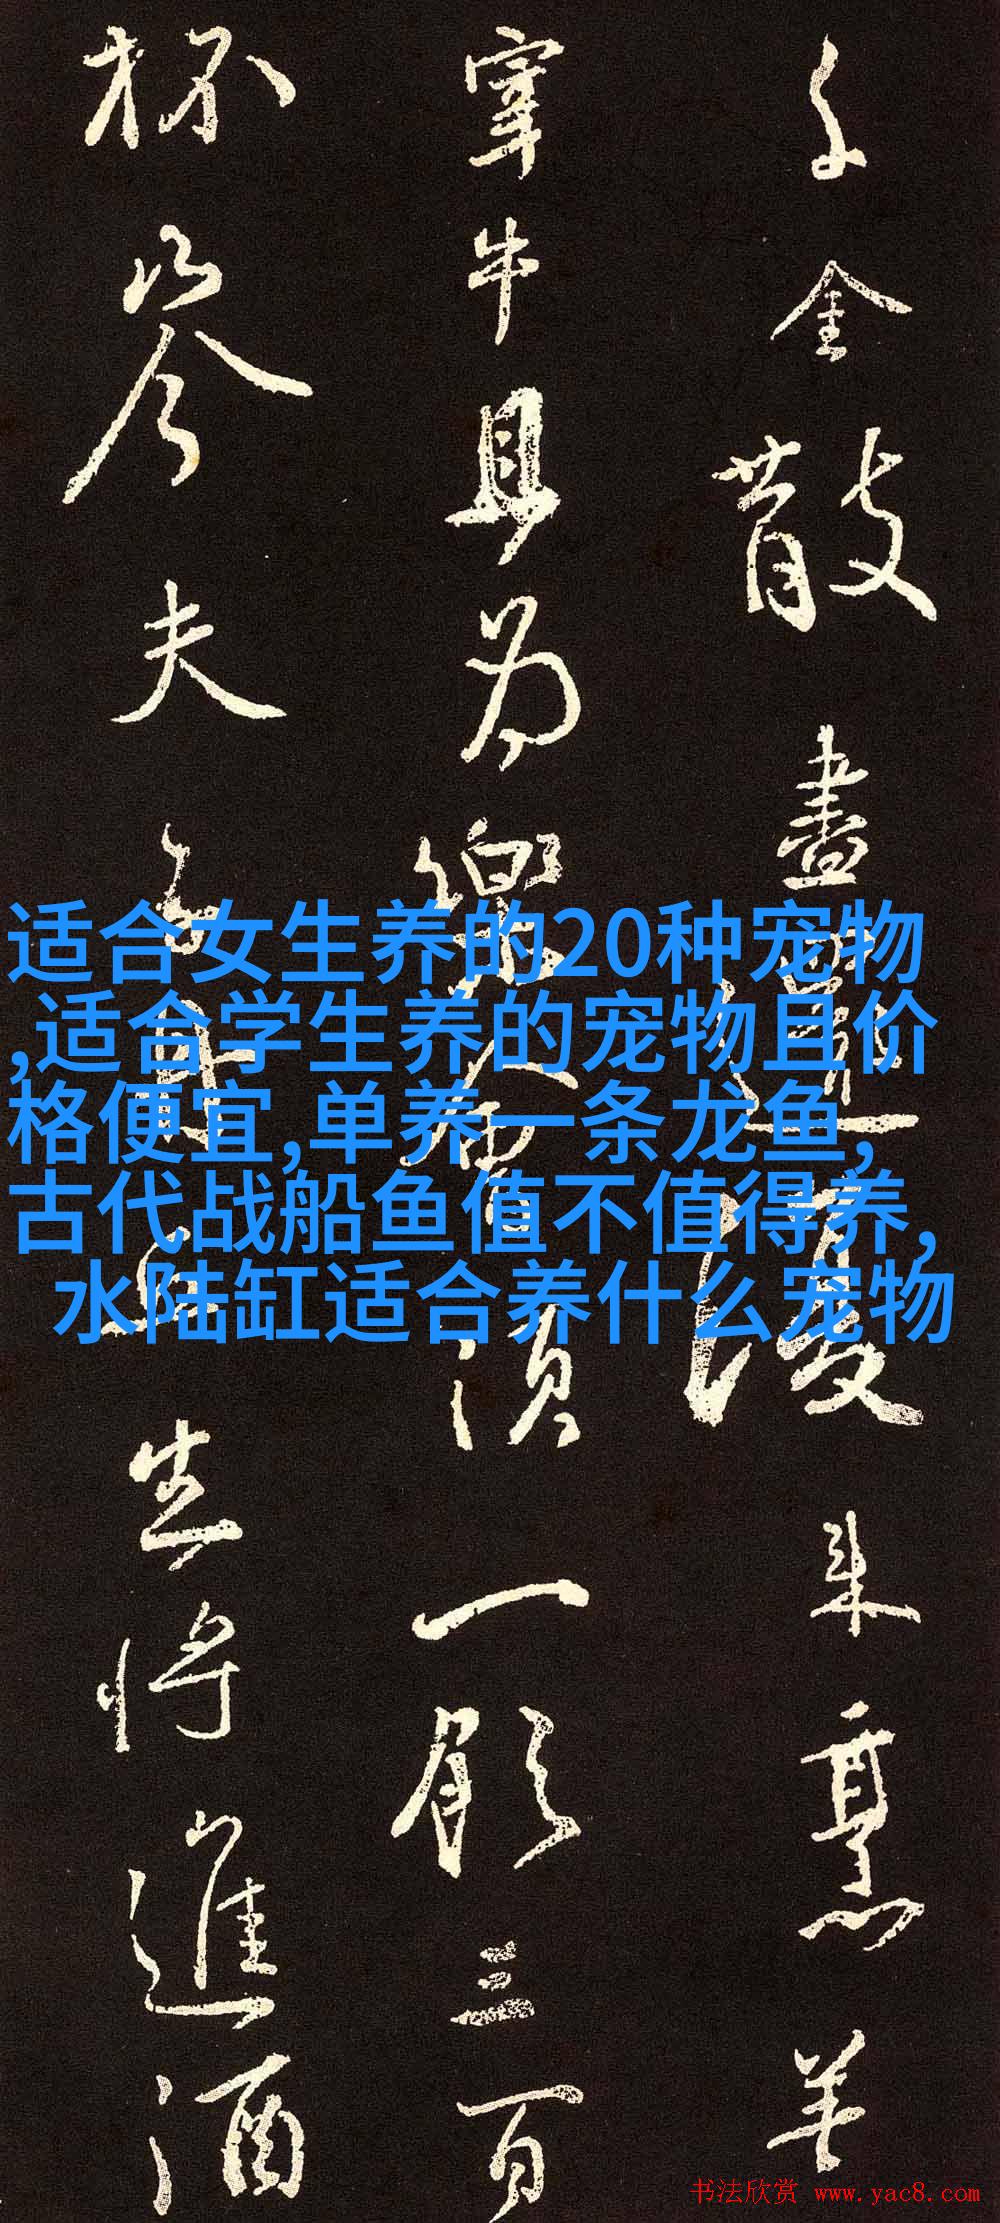 适合女生养的20种宠物
,适合学生养的宠物且价
格便宜,单养一条龙鱼,
古代战船鱼值不值得养,
水陆缸适合养什么宠物
千金散盡還復来烹羊
宰牛且为樂會須一飲三百
杯岑夫子丹丘生將進酒
书法欣赏 www.yac8.com